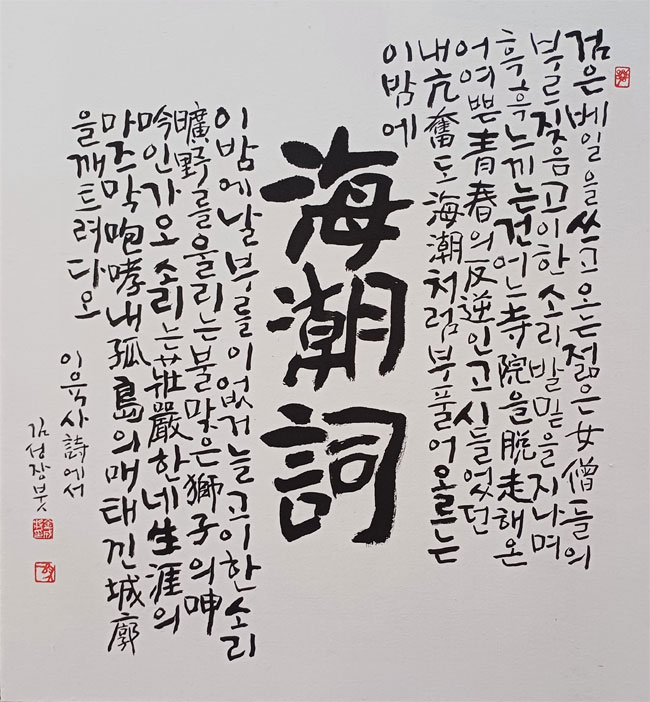 검은베일을쓰고오는젊은女僧들의
부르짖음고이한소리발밑을지나며
흑흑느끼는건어느寺院을脫走해온
어여쁜青春의反逆인고시들었던
내亢奮도海潮처럼부풀어오르는
이밤에
海潮詞
이밤에날부를이없거늘고이한소리
曠野를울리는불맞은獅子의呻
吟인가오소리는莊嚴한네生涯의
마즈막咆哮내孤島의매태낀城廓
을깨트려다오
이육사詩에서
김성장붓